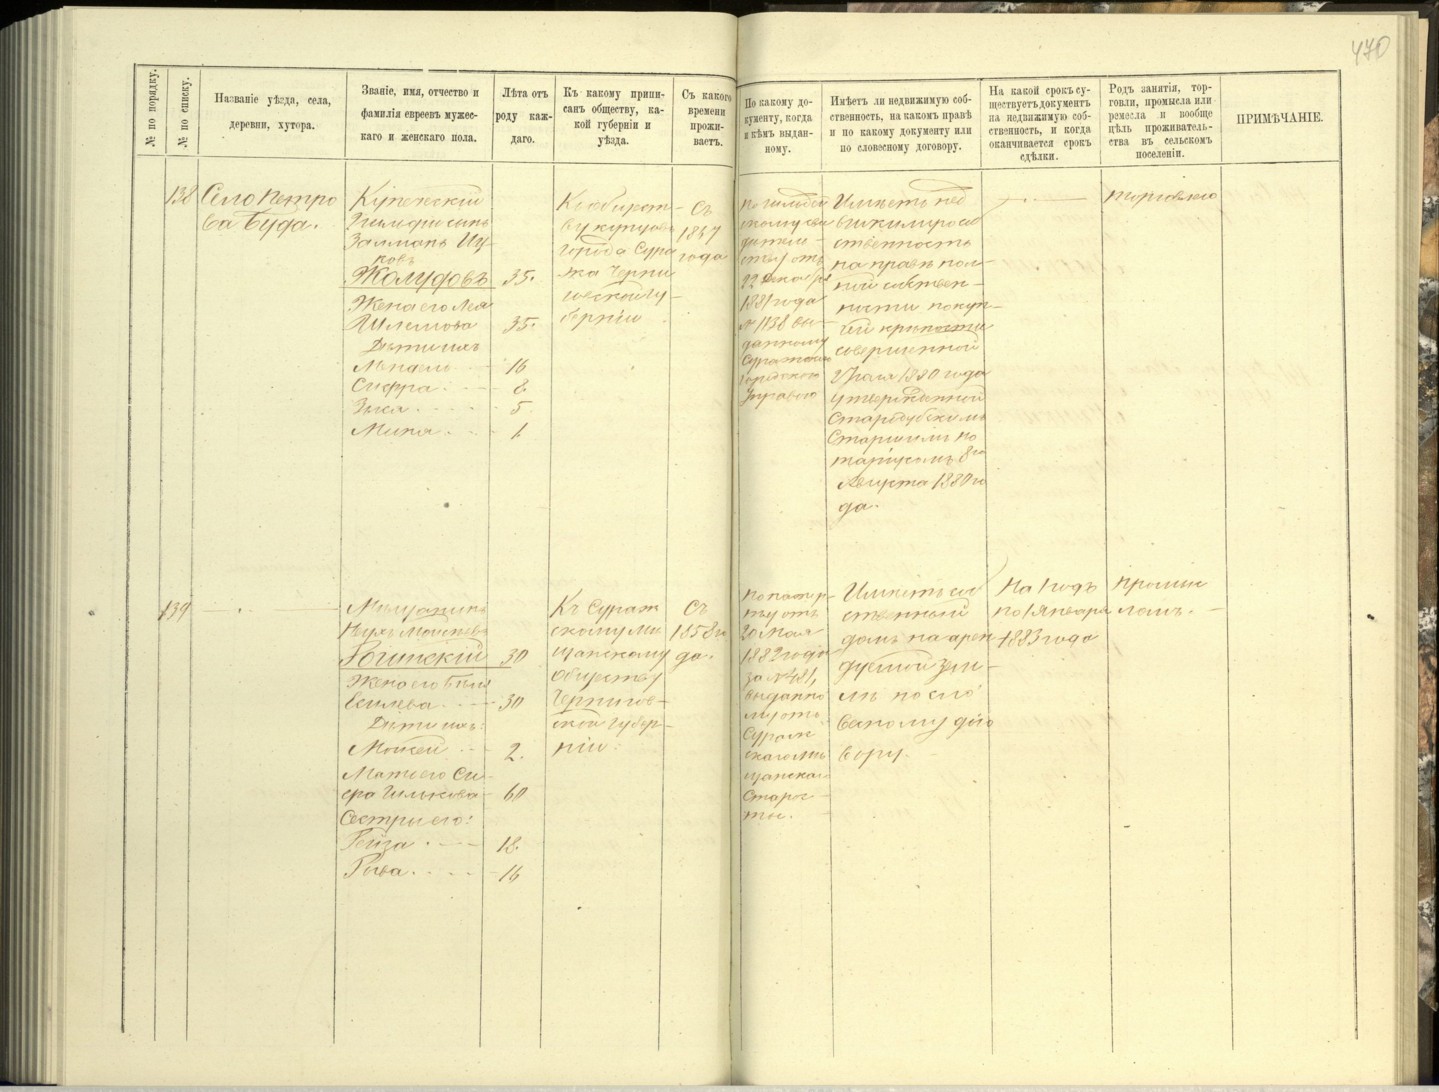 470
№ по порядку.
№ по списку.
Названіе уѣзда, села,
деревни, хутора.
Званіе, имя, отчество и
фамилія евреевъ мужес-
каго и женскаго пола.
Лѣта отъ
роду каж-
даго.
Къ какому припи-
санъ обществу, ка-
кой губерніи и
уѣзда.
Съ какого
времени
прожи-
ваетъ.
По какому до-
кументу, когда
и кѣмъ выдан-
ному.
Имѣетъ ли недвижимую соб-
ственность, на какомъ правѣ
и по какому документу или
по словесному договору.
На какой срокъ су-
ществуетъ документъ
на недвижимую соб-
ственность, и когда
оканчивается срокъ
сдѣлки.
Родъ занятія, тор-
говли, промысла или
ремесла и вообще
цѣль проживатель-
ства въ сельском
поселеніи.
ПРИМѢЧАНІЕ.
138
Село Петро
ва Буда.
Купеческій
сынъ
Залманъ Иц
ковъ
Жолудовъ 35.
Жена его Лея
Шлемова 35.
Дети ихъ
16
Сифра 8
5
1
Къ общест-
ву купцовъ
города Сура
жа Черни
говской гу-
берніи
Съ
1847
года
По гильдей
скому сви
детель-
ству отъ
22 Декабря
1881 года
№ 1138 вы-
данному
Суражской
Городской
Управою
Имѣетъ нед
вижимую соб
ственность
на правѣ пол-
ной собствен-
ности по куп-
чей крѣпости
совершенной
1880 года
утвержденной
Стародубскимъ
Старшимъ но
таріусомъ 8го
Августа 1880 го
да.
торговлею
139
Мещанинъ
Моисеевъ
Рогинскій 30
Жена его
30
Дети ихъ:
Моисей 2.
Мать его Си-
60
Сестры его:
18.
16
Къ Сураж
скому ме
щанскому
обществу
Чернигов-
ской губер-
ніи.
Съ
1858 го
да.
По паспор-
ту отъ
20 Мая
1882 года
за № 481,
выданно
му отъ
Сураж
скаго ме
щанскаго
старос-
ты.
Имѣетъ соб
ственный
домъ на арен
дуемой зем-
лѣ по сло
весному дого
вору.
На годъ
по 1 Января
1883 года